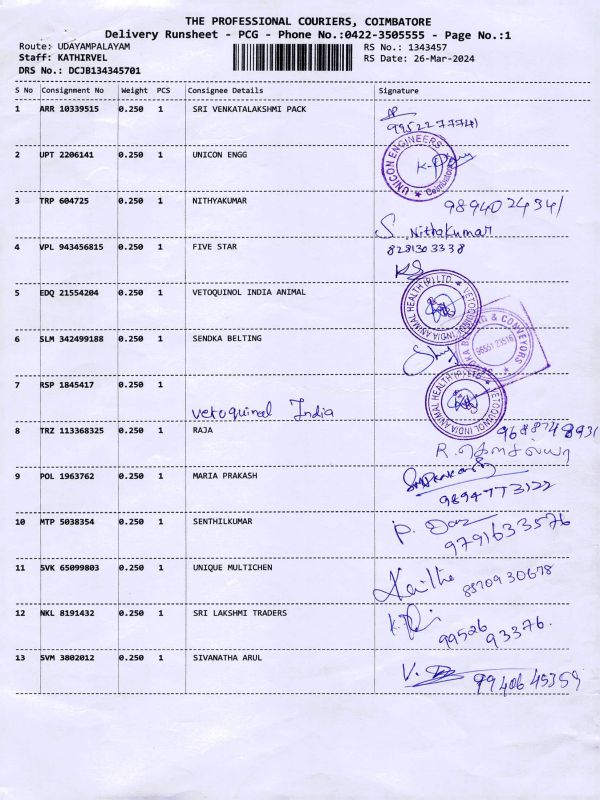 THE PROFESSIONAL COURIERS, COIMBATORE
Delivery Runsheet - PCG - Phone No.:0422-3505555 - Page No.:1
Route: UDAYAMPALAYAM RS No.: 1343457
Staff: KATHIRVEL RS Date: 26-Mar-2024
DRS No.: DCJB134345701
S No Consignment No Weight PCS Consignee Details Signature
1 ARR 10339515 0.250 1 SRI VENKATALAKSHMI PACK
9952277741
2 UPT 2206141 0.250 1 UNICON ENGG
UNICON ENGINEERS Coimbatore
3 TRP 604725 0.250 1 NITHYAKUMAR 9894024341
S. Nithakumar
4 VPL 943456815 0.250 1 FIVE STAR 8281303338
KS
5 EDQ 21554204 0.250 1 VETOQUINOL INDIA ANIMAL
VETOQUINOL INDIA ANIMAL HEALTH (P) LTD.
6 SLM 342499188 0.250 1 SENDKA BELTING
& CONVEYORS
7 RSP 1845417 0.250 1
vetoquinal India
VETOQUINOL INDIA ANIMAL HEALTH (P) LTD.
8 TRZ 113368325 0.250 1 RAJA 9688748931
9 POL 1963762 0.250 1 MARIA PRAKASH
9894773122
10 MTP 5038354 0.250 1 SENTHILKUMAR
9791633576
11 SVK 65099803 0.250 1 UNIQUE MULTICHEN
8870930678
12 NKL 8191432 0.250 1 SRI LAKSHMI TRADERS
99526 93376.
13 SVM 3802012 0.250 1 SIVANATHA ARUL
9940645359